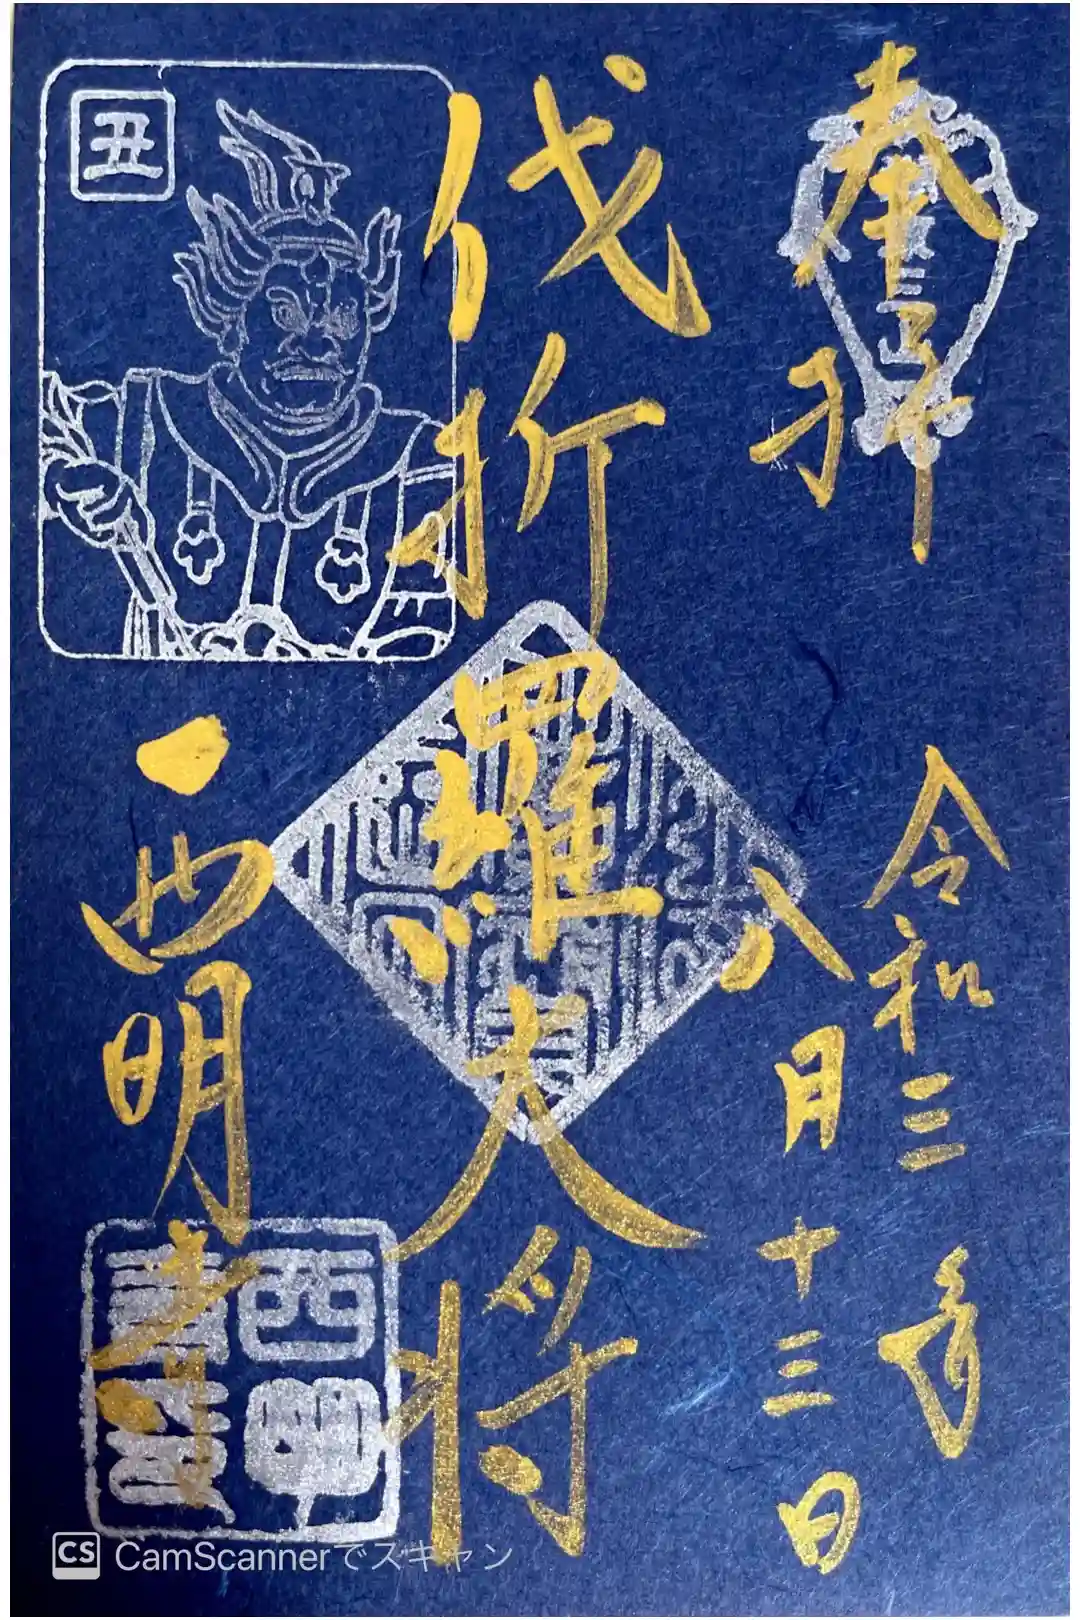 奉拝
令和三年
八月十三日
伐折羅大将
西明寺
丑
CS CamScannerでスキャン